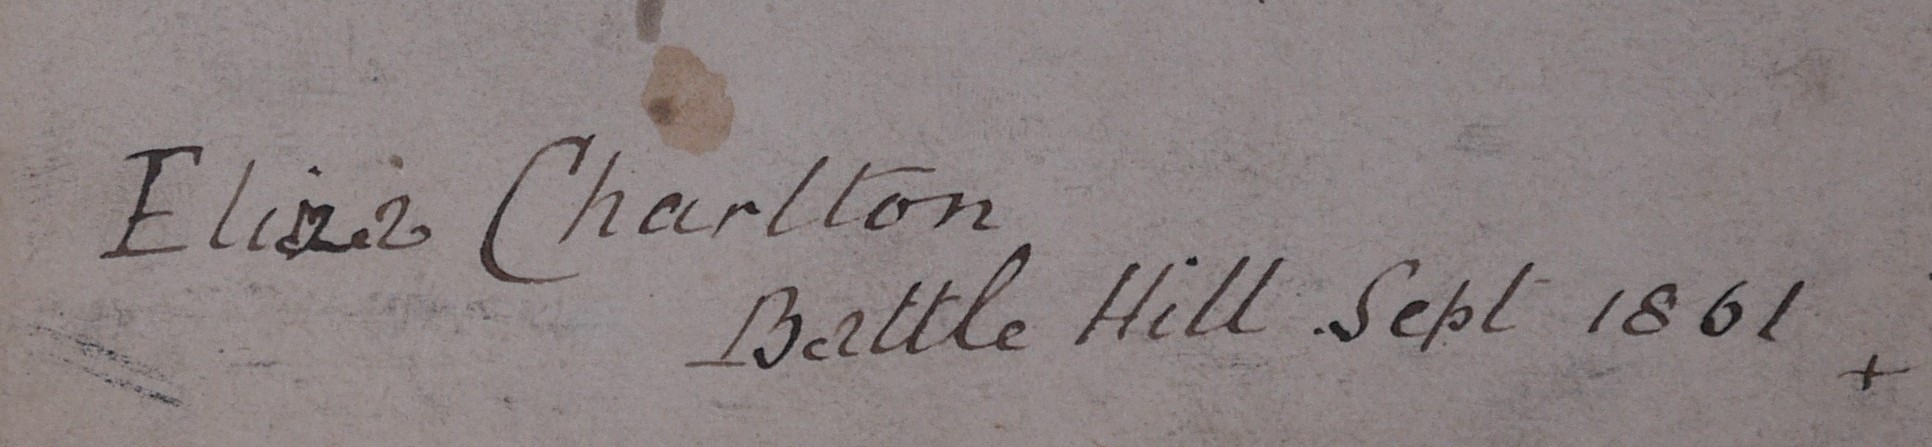 Eliza Charlton
Battle Hill Sept 1861 +